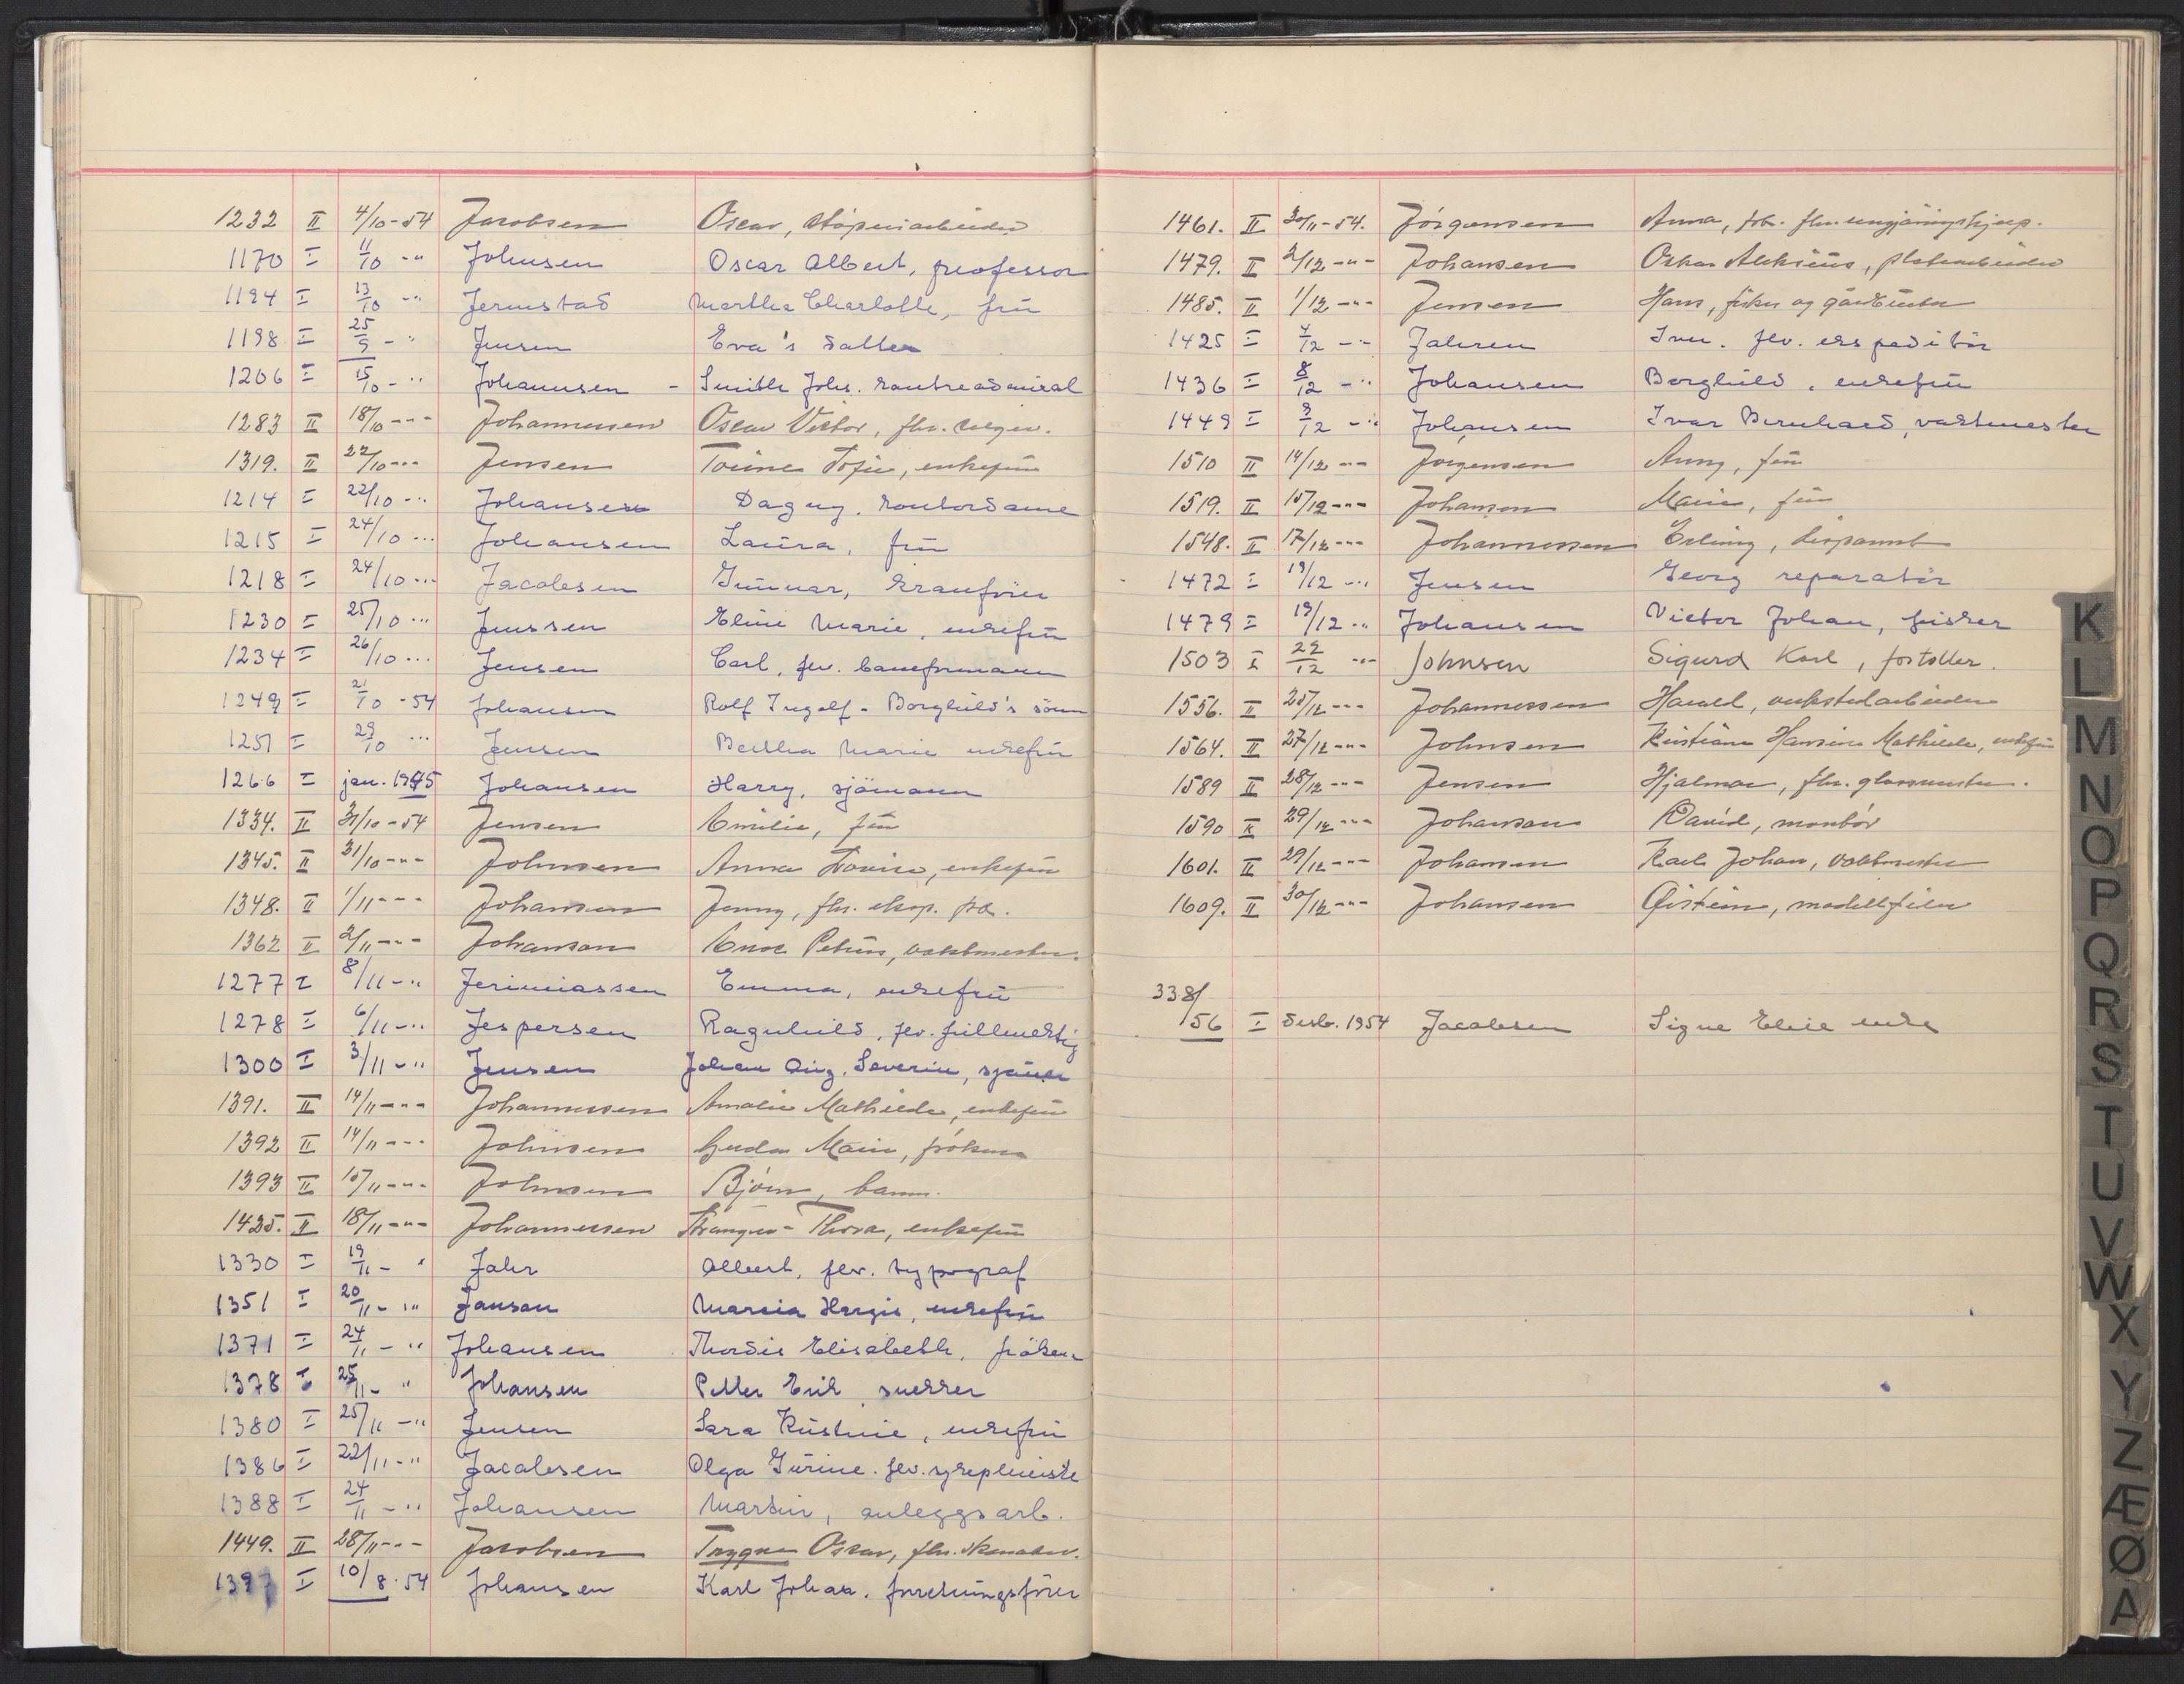 1232 II 4/10-54 Jacobsen Oscar, støperiarbeider
1170 I 11/10 -" Johnsen Oscar Albert, professor
1194 I 13/10 -" Jermstad Martha Charlotte, frü
1198 I 25/9 -" Jensen Eva's datter
1206 I 15/10 -" Johannsen - Smith Johs. kontreadmiral
1283 II 18/10 -"- Johannessen Oscar Victor, fhv.
1319. II 22/10 -"- Jensen Sofie, enkefrü
1214 I 22/10 -" Johansen Dagny. kontordame
1215 I 24/10 -" Johansen Laura, frü
1218 I 24/10 -" Jacobsen Gunnar, kranfører
1230 I 25/10 -" Jenssen Eline Marie, enkefrü
1234 I 26/10 -" Jensen Carl, fev. baneformann
1249 I 21/10 -54 Johansen Rolf Ingolf - Borghild's sønn
1251 I 29/10 -" Jensen Bertha Marie enkefrü
1266 I jan. 1945 Johansen Harry, sjömann
1334. II 31/10-54 Jensen Emilie, frü
1345. II 31/10 -"- Johnsen Anna Lovise, enkefrü
1348. II 1/11 -"- Johansen Jenny, fhv. eksp.
1362 II 2/11 -"- Johanson Petrus, vaktmester.
1277 I 8/11 -" Jerimiassen Emma, enkefrü
1278 I 6/11 -" Jespersen Ragnhild, fev. fullmektig
1300 I 3/11 -" Jensen Johan Aug. Severin,
1391. II 14/11 -"- Johannessen Amalie Mathilde, enkefrü
1392 II 14/11 -"- Johnsen Marie, frøken
1393 II 15/11 -"- Johnsen Bjørn, barn.
1425. II 18/11 -"- Johannessen Thora, enkefrü
1330 I 19/11 - " Jahr Albert, fev. typograf
1351 I 20/11 -" Janson enkefrü
1371 I 24/11 -" Johansen Thordis Elisabeth, fröken
1378 I 25/11 -" Johansen Petter Erik snekker
1380 I 25/11 -" Jensen Sara Kristine, enkefrü
1386 I 22/11 -" Jacobsen Olga Gurine. fev.
1388 I 24/11 -" Johansen Martin, anleggsarb.
1449. II 28/11 -"- Jacobsen Trygve Oskar, fhv.
1397 I 10/8.54 Johansen Karl Johan. forretningsfører
1461. II 30/11-54. Jørgensen Anna, fhv. rengjøringshjelp.
1479. II 2/12 -"- Johansen Oskar Aleksius, platearbeider
1485. II 1/12 -"- Jensen Hans, fisker og gårdbruker
1425 I 4/12 -" Jahren Iver. fev. ekspeditör
1436 I 8/12 -" Johansen Borghild, enkefrü
1449 I 9/12 -" Johansen Ivar Bernhard, vaktmester
1510 II 14/12 -"- Jørgensen Anny, frü
1519. II 15/12 -"- Johansen Marie, frü
1548. II 17/12 -"- Johannessen Erling, disponent
1472 I 19/12 -" Jensen Georg reparatör
1479 I 19/12 -" Johansen Victor Johan, fisker
1503 I 22/12 -" Johnsen Sigurd Karl, fortoller.
1556. II 25/12 -"- Johannessen Harald, verkstedarbeider
1564. II 27/12 -"- Johnsen Kristiane Hansine Mathilde, enkefrü
1589 II 28/12 -"- Jensen Hjalmar, fhv. glassmester.
1590 II 29/12 -"- Johanson David, montør
1601. II 29/12 -"- Johansen Karl Johan, vaktmester
1609. II 30/12 -"- Johansen Øistein, modellfiler
338/
56 I desb. 1954 Jacobsen Signe Elise enke
K
L
M
N
O
P
Q
R
S
T
U
V
W
X
Y
Z
Æ
Ø
A